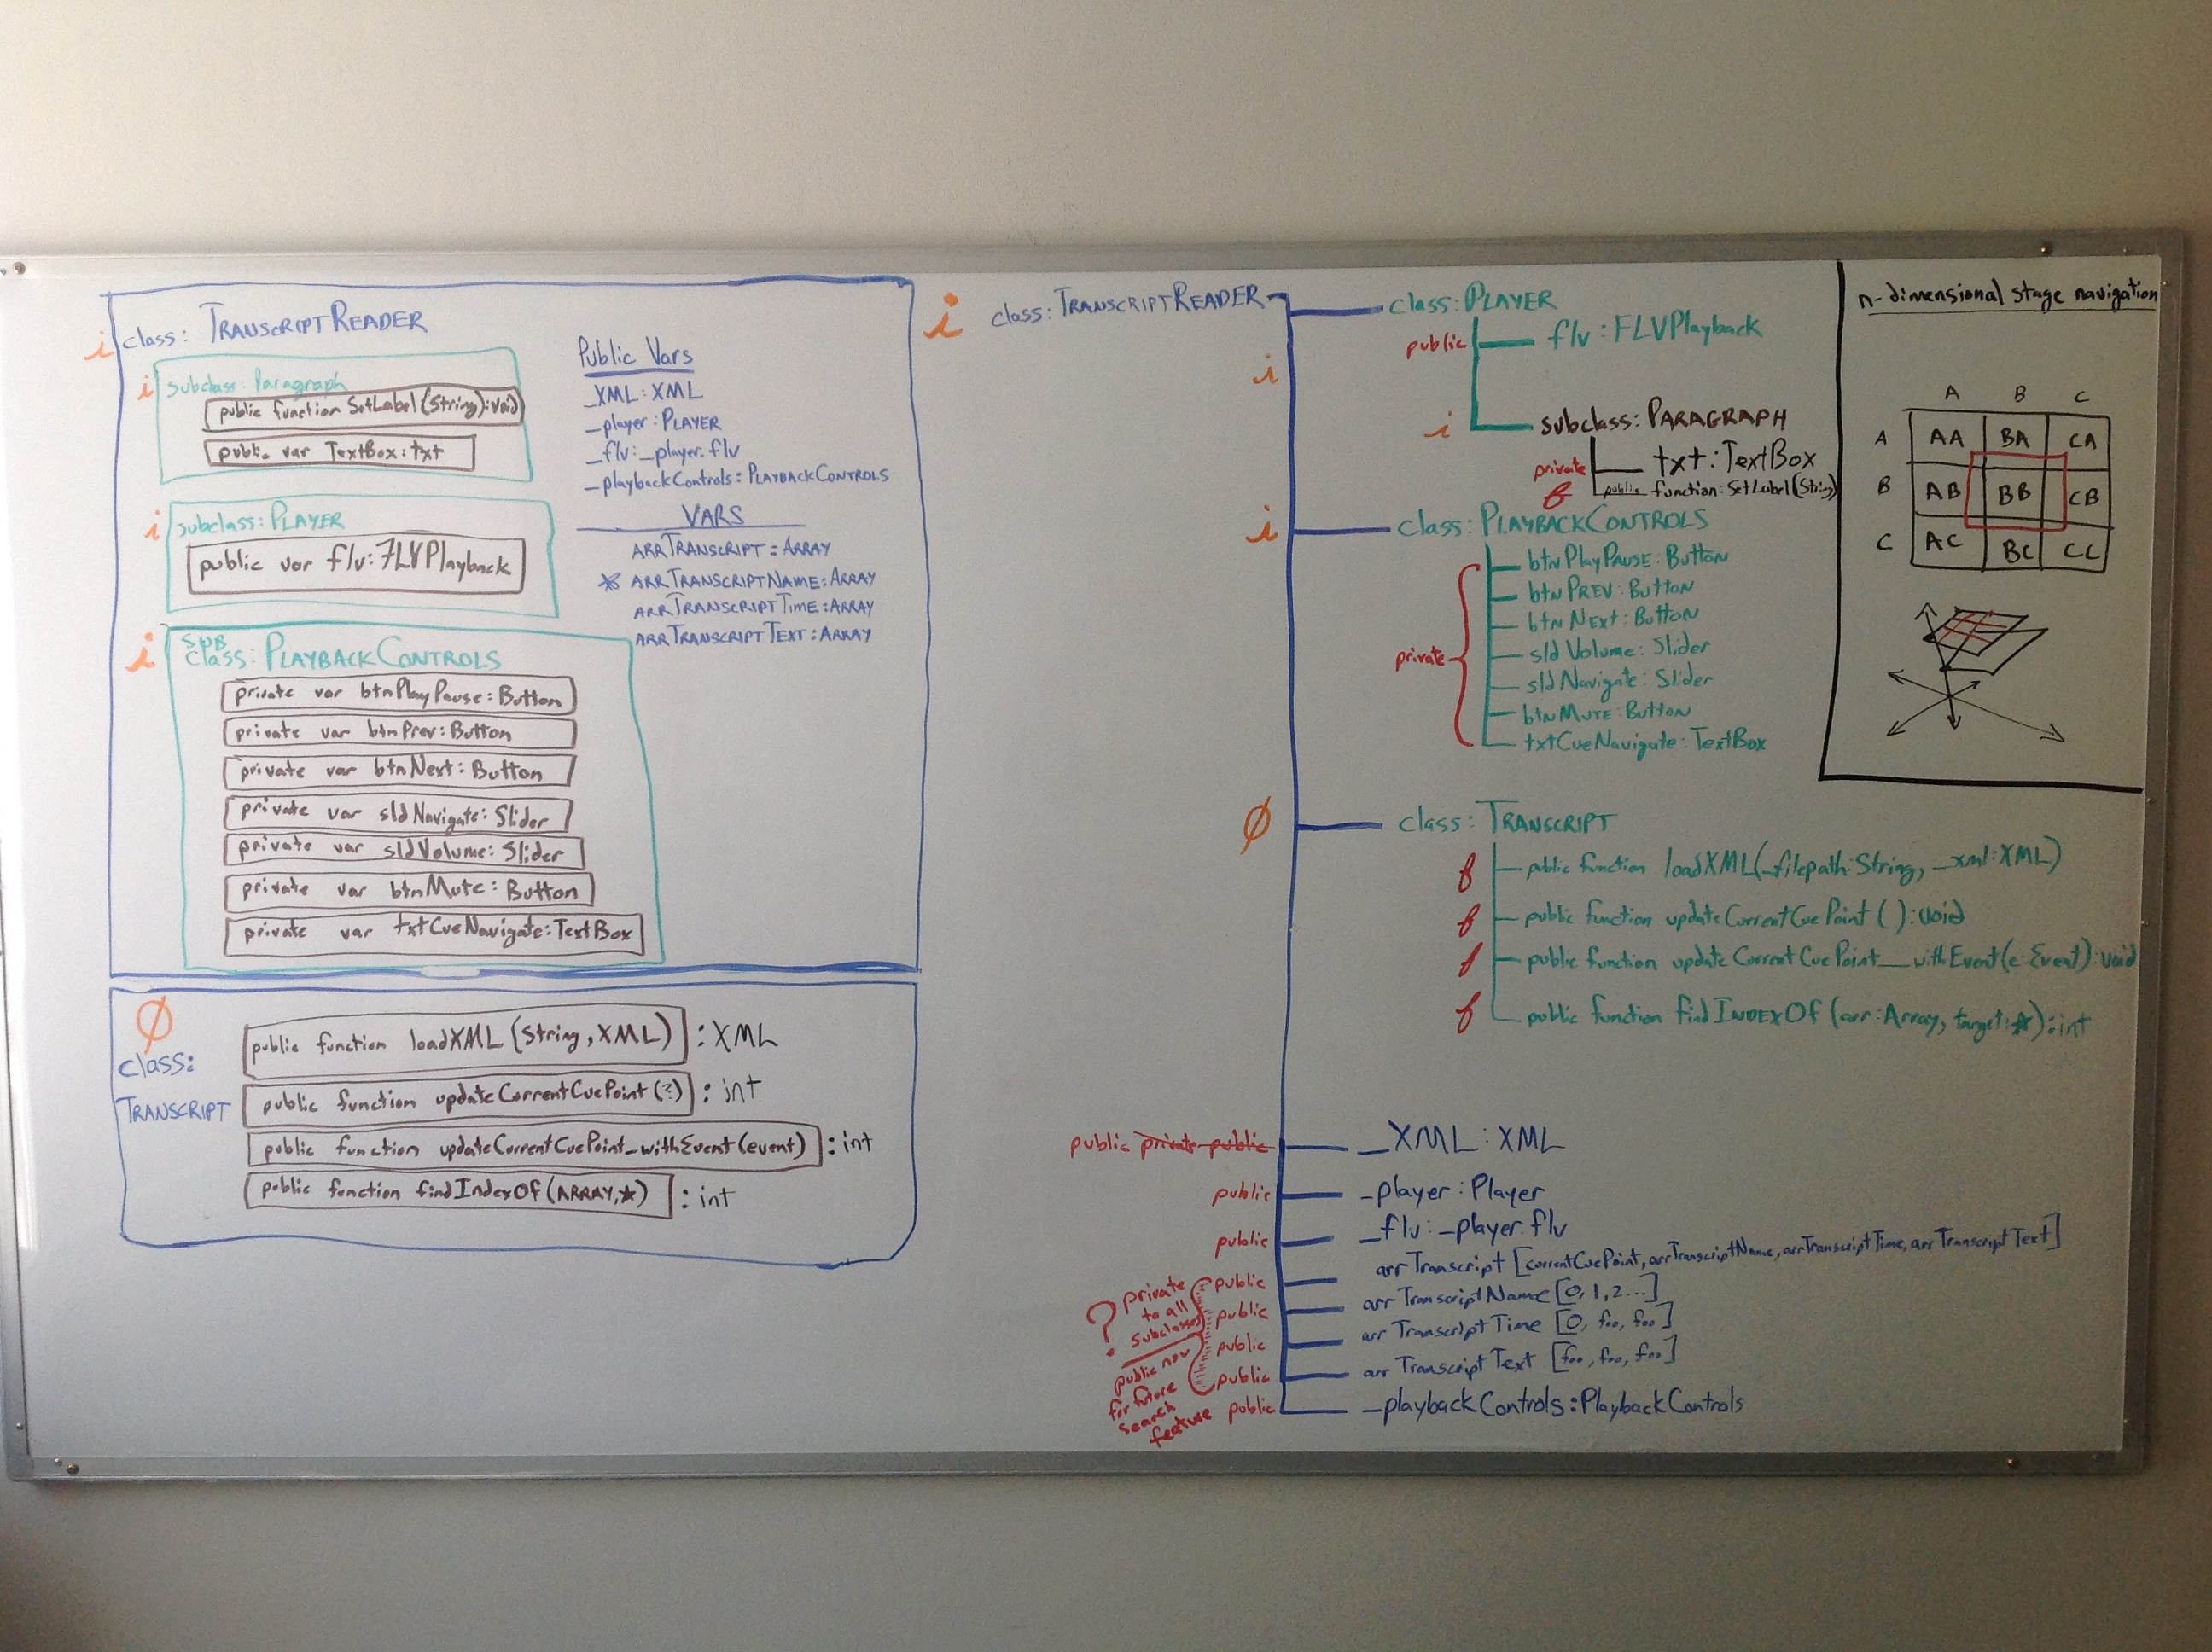 i class: TRANSCRIPTREADER
i subclass: Paragraph
public function SetLabel(String):void
public var TextBox:txt
i subclass: PLAYER
public var flv:FLVPlayback
i SUB
class: PLAYBACKCONTROLS
private var btnPlayPause:Button
private var btnPrev:Button
private var btnNext:Button
private var sldNavigate:Slider
private var sldVolume:Slider
private var btnMute:Button
private var txtCueNavigate:TextBox
Public Vars
_XML:XML
_player:PLAYER
_flv:_player.flv
_playbackControls:PLAYBACKCONTROLS
VARS
ARRTRANSCRIPT:ARRAY
* ARRTRANSCRIPTNAME:ARRAY
ARRTRANSCRIPTTIME:ARRAY
ARRTRANSCRIPTTEXT:ARRAY
Ø
class:
TRANSCRIPT
public function loadXML(String,XML):XML
public function updateCurrentCuePoint(?):int
public function updateCurrentCuePoint_withEvent(event):int
public function findIndexOf(ARRAY,*):int
i class:TRANSCRIPTREADER
i class:PLAYER
public flv:FLVPlayback
i subclass:PARAGRAPH
private txt:TextBox
f public function:SetLabel(String)
i class:PLAYBACKCONTROLS
private
btnPlayPAUSE:Button
btnPREV:Button
btnNext:Button
sldVolume:Slider
sldNavigate:Slider
btnMUTE:Button
txtCueNavigate:TextBox
Ø class:TRANSCRIPT
f public function loadXML(_filepath:String, _xml:XML)
f public function updateCurrentCuePoint():void
f public function updateCurrentCuePoint_withEvent(e:Event):void
f public function findINDEXOf(arr:Array, target:*):int
public private public _XML:XML
public _player:Player
public _flv:_player.flv
public arrTranscript [currentCuePoint, arrTranscriptName, arrTranscriptTime, arrTranscriptText]
public arrTranscriptName [0,1,2...]
public arrTranscriptTime [0, foo, foo]
public arrTranscriptText [foo, foo, foo]
public _playbackControls:PlaybackControls
? private
to all
subclasses
public now
for future
search
feature
n-dimensional stage navigation
A B C
A AA BA CA
B AB BB CB
C AC BC CC